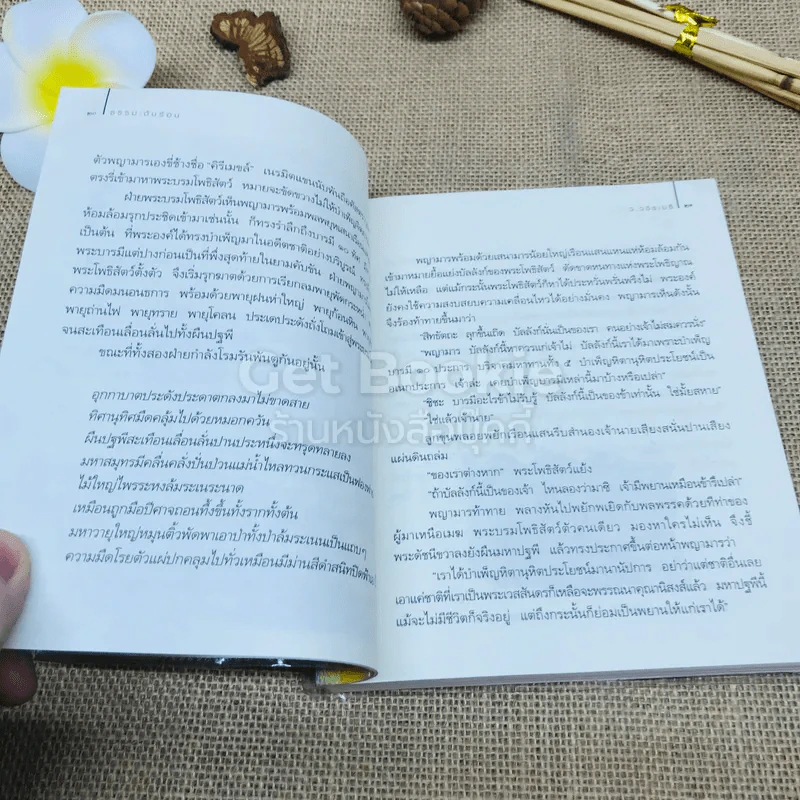 ธรรมะติดปีก
ตัวพญามารเองขี่ช้างชื่อ "คิรีเมขล์" เนรมิตแขนนับพันถือ
ตรงรี่เข้ามาหาพระบรมโพธิสัตว์ หมายจะขัดขวางไม่ให้บำเพ็ญ
ฝ่ายพระบรมโพธิสัตว์เห็นพญามารพร้อมพลพยุหเสนา
ห้อมล้อมรุกประชิดเข้ามาเช่นนั้น ก็ทรงรำลึกถึงบารมี ๑๐ ทัศ
เป็นต้น ที่พระองค์ได้ทรงบำเพ็ญมาในอดีตชาติอย่างบริบูรณ์
พระบารมีแต่ปางก่อนเป็นที่พึ่งสุดท้ายในยามคับขัน ฝ่ายพญามาร
พระโพธิสัตว์ตั้งตัว จึงเริ่มรุกฆาตด้วยการเรียกลมพายุพัด
ความมืดมนอนธการ พร้อมด้วยพายุฝนห่าใหญ่ พายุก้อนหิน
พายุถ่านไฟ พายุทราย พายุโคลน ประเดประดังถั่งโถมเข้าสู่
จนสะเทือนเลื่อนลั่นไปทั้งผืนปฐพี
ขณะที่ทั้งสองฝ่ายกำลังโรมรันพันตูกันอยู่นั้น
อุกกาบาตประดังประดาตกลงมาไม่ขาดสาย
ทิศานุทิศมืดคลุ้มไปด้วยหมอกควัน
ผืนปฐพีสะเทือนเลื่อนลั่นปานประหนึ่งจะทรุดทลายลง
มหาสมุทรมีคลื่นคลั่งปั่นป่วนแม่น้ำไหลทวนกระแสเป็นฟอง
ไม้ใหญ่ไพรระหงล้มระเนระนาด
เหมือนถูกมือปีศาจถอนทึ้งขึ้นทั้งรากทั้งต้น
มหาวายุใหญ่หมุนติ้วพัดพาเอาป่าทั้งป่าล้มระเนนเป็นแถบๆ
ความมืดโรยตัวแผ่ปกคลุมไปทั่วเหมือนมีม่านสีดำสนิทปิดฟ้า
ว.วชิรเมธี
พญามารพร้อมด้วยเสนามารน้อยใหญ่เรือนแสนแหนแห่ห้อมล้อมกัน
เข้ามาหมายยื้อแย่งบัลลังก์ของพระโพธิสัตว์ ตัดขาดหนทางแห่งพระโพธิญาณ
ไม่ให้เหลือ แต่แม้กระนั้นพระโพธิสัตว์ก็หาได้ประหวั่นพรั่นพรึงไม่ พระองค์
ยังคงใช้ความสงบสยบความเคลื่อนไหวได้อย่างมั่นคง พญามารเห็นดังนั้น
จึงร้องท้าทายขึ้นมาว่า
"สิทธัตถะ ลุกขึ้นเถิด บัลลังก์นั่นเป็นของเรา คนอย่างเจ้าไม่สมควรนั่ง"
"พญามาร บัลลังก์นี้หาควรแก่เจ้าไม่ บัลลังก์นี้เราได้มาเพราะบำเพ็ญ
บารมี ๑๐ ประการ บริจาคมหาทานทั้ง ๕ บำเพ็ญหิตานุหิตประโยชน์เป็น
อเนกประการ เจ้าล่ะ เคยบำเพ็ญบารมีเหล่านี้มาบ้างหรือเปล่า"
"ชิชะ บารมีอะไรข้าไม่รับรู้ บัลลังก์นี้เป็นของข้าเท่านั้น ใช่มั้ยสหาย"
"ใช่แล้วเจ้านาย"
ลูกขุนพลอยพยักเรือนแสนรีบสำนองเจ้านายเสียงสนั่นปานเสียง
แผ่นดินถล่ม
"ของเราต่างหาก" พระโพธิสัตว์แย้ง
"ถ้าบัลลังก์นี้เป็นของเจ้า ไหนลองว่ามาซิ เจ้ามีพยานเหมือนข้ารึเปล่า"
พญามารท้าทาย พลางหันไปพยักพเยิดกับพลพรรคด้วยทีท่าของ
ผู้มาเหนือเมฆ พระบรมโพธิสัตว์ตัวคนเดียว มองหาใครไม่เห็น จึงชี้
พระดัชนีขวาลงยังผืนมหาปฐพี แล้วทรงประกาศขึ้นต่อหน้าพญามารว่า
"เราได้บำเพ็ญหิตานุหิตประโยชน์มานานัปการ อย่าว่าแต่ชาติอื่นเลย
เอาแค่ชาติที่เราเป็นพระเวสสันดรก็เหลือจะพรรณนาคุณานิสงส์แล้ว มหาปฐพีนี้
แม้จะไม่มีชีวิตก็จริงอยู่ แต่ถึงกระนั้นก็ย่อมเป็นพยานให้แก่เราได้"
Get Bookie
ร้านหนังสือบุ๊คกี้